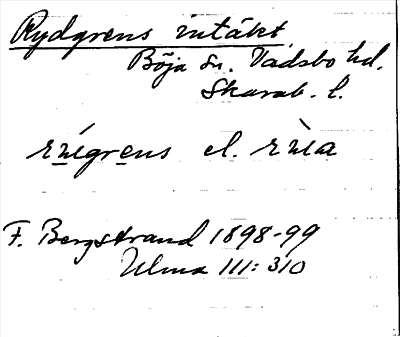 Rydgrens intäkt
Böja sn. Vadsbo hd.
Skarab. l.
rúegrens el. rùea
F. Bergstrand 1898-99
Ulma 111: 310